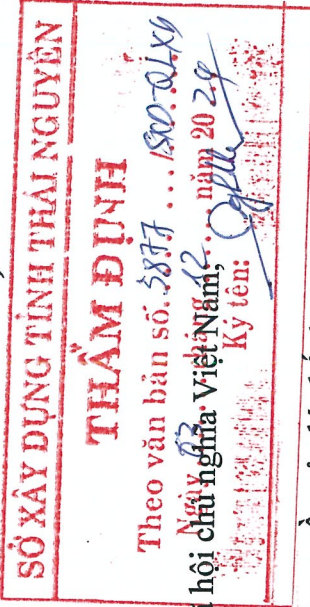 SỞ XÂY DỰNG TỈNH THÁI NGUYÊN
THẨM ĐỊNH
Theo văn bản số: 3877 /SXD-QLXD
Ngày 03 tháng 12 năm 2024
hội chủ nghĩa Việt Nam,
Ký tên: